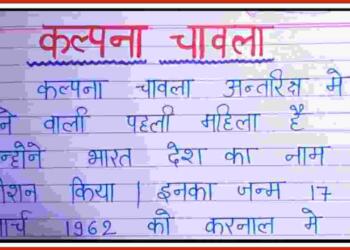 कल्पना चावला
कल्पना चावला अन्तरिक्ष मे
ने वाली पहली महिला है
न्होने भारत देश का नाम
शन किया | इनका जन्म 17
र्च 1962 को करनाल मे